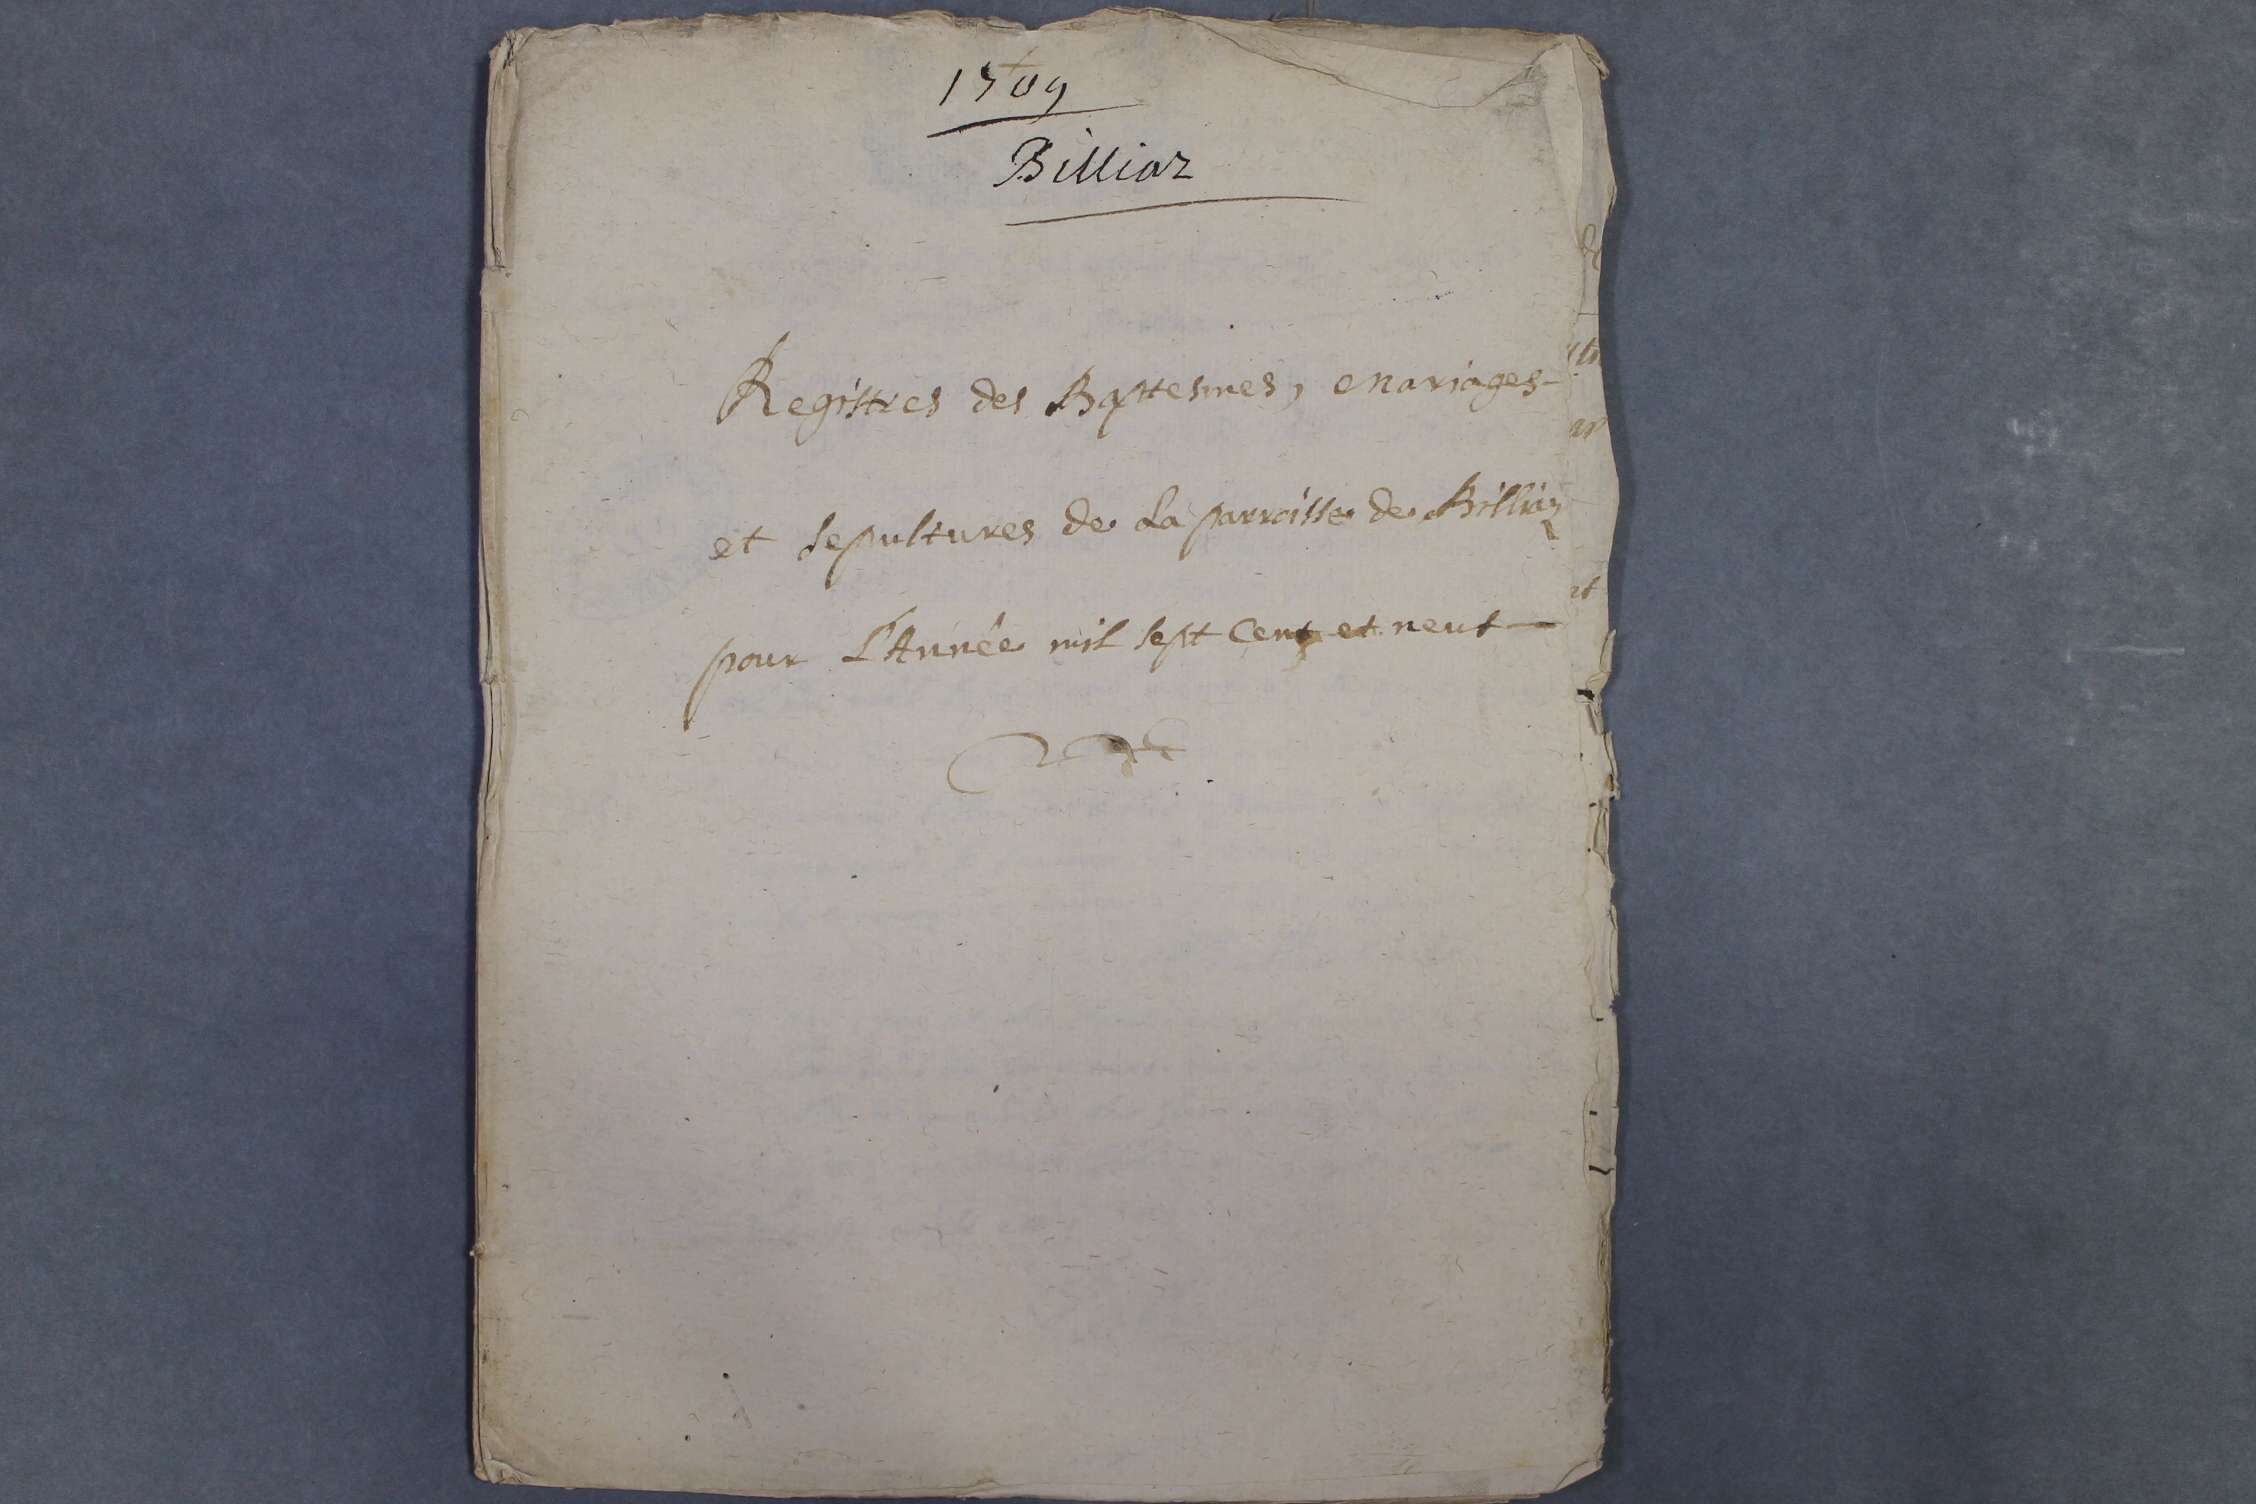 1709
Billiaz
Registres des Baptesmes, Mariages
et sepultures de La parroisse de Billiaz
pour L'Année mil sept Cent et neuf